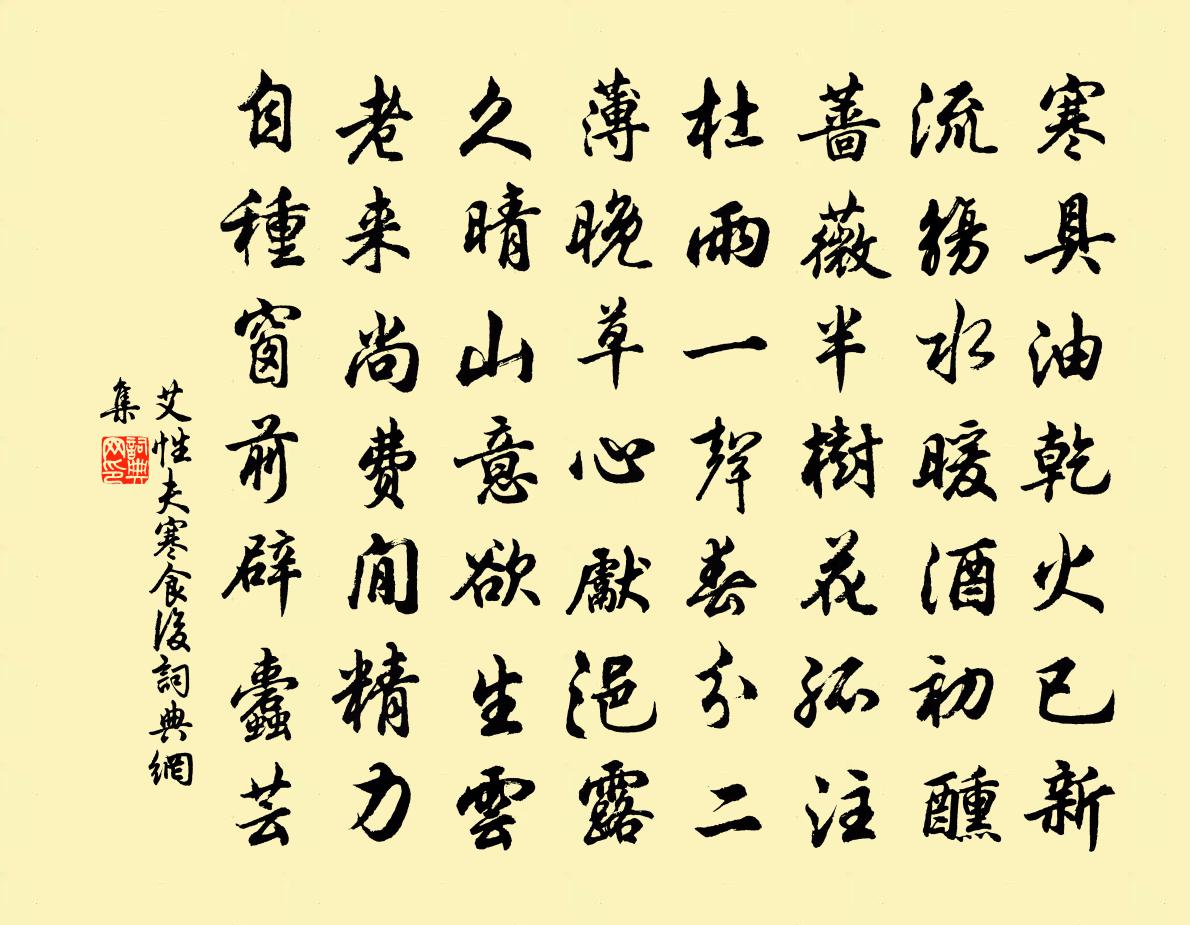 寒具油乾火已新
流觴水暖酒初醺
薔薇半樹花孤注
杜雨一聲春分二
薄晚草心獻浥露
久晴山意欲生雲
老来尚費閒精力
自種窗前辟蠹芸
艾性夫寒食後詞典網
集
詞典网印